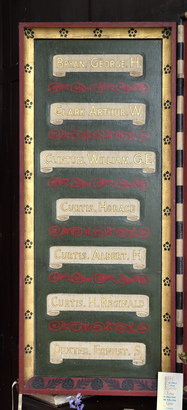 BRYAN, GEORGE H.
CLARK, ARTHUR W.
CURTIS, WILLIAM G.E.
CURTIS, HORACE
CURTIS, ALBERT, H.
CURTIS, H. REGINALD
S.